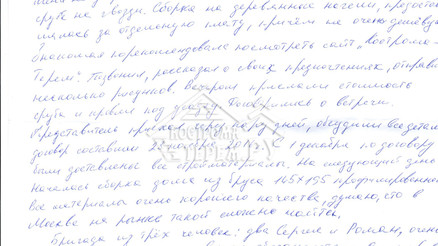 сруба на гвозди. Сборка на деревянные нагели, предостав-
лялась за отдельную плату, причём не очень дешёвую.
Знакомая порекомендовала посмотреть сайт "Кострома-
Терем". Позвонил, рассказал о своих предпочтениях, отправил
несколько рисунков, вскоре прислали стоимость
сруба и кровли под усадку. Договорились о встрече.
Представитель приехал через пару дней, обсудили все детали,
договор составили 22 ноября. С 1 декабря по договору
были доставлены все стройматериалы. На следующий день
началась сборка дома из бруса 145х195 профилированного.
Все материалы очень хорошего качества, думаю, что в
Москве на рынке такой сложно найти.
Бригада из трёх человек: два Сергея и Роман, очень
КОСТРОМА
ТЕРЕМ